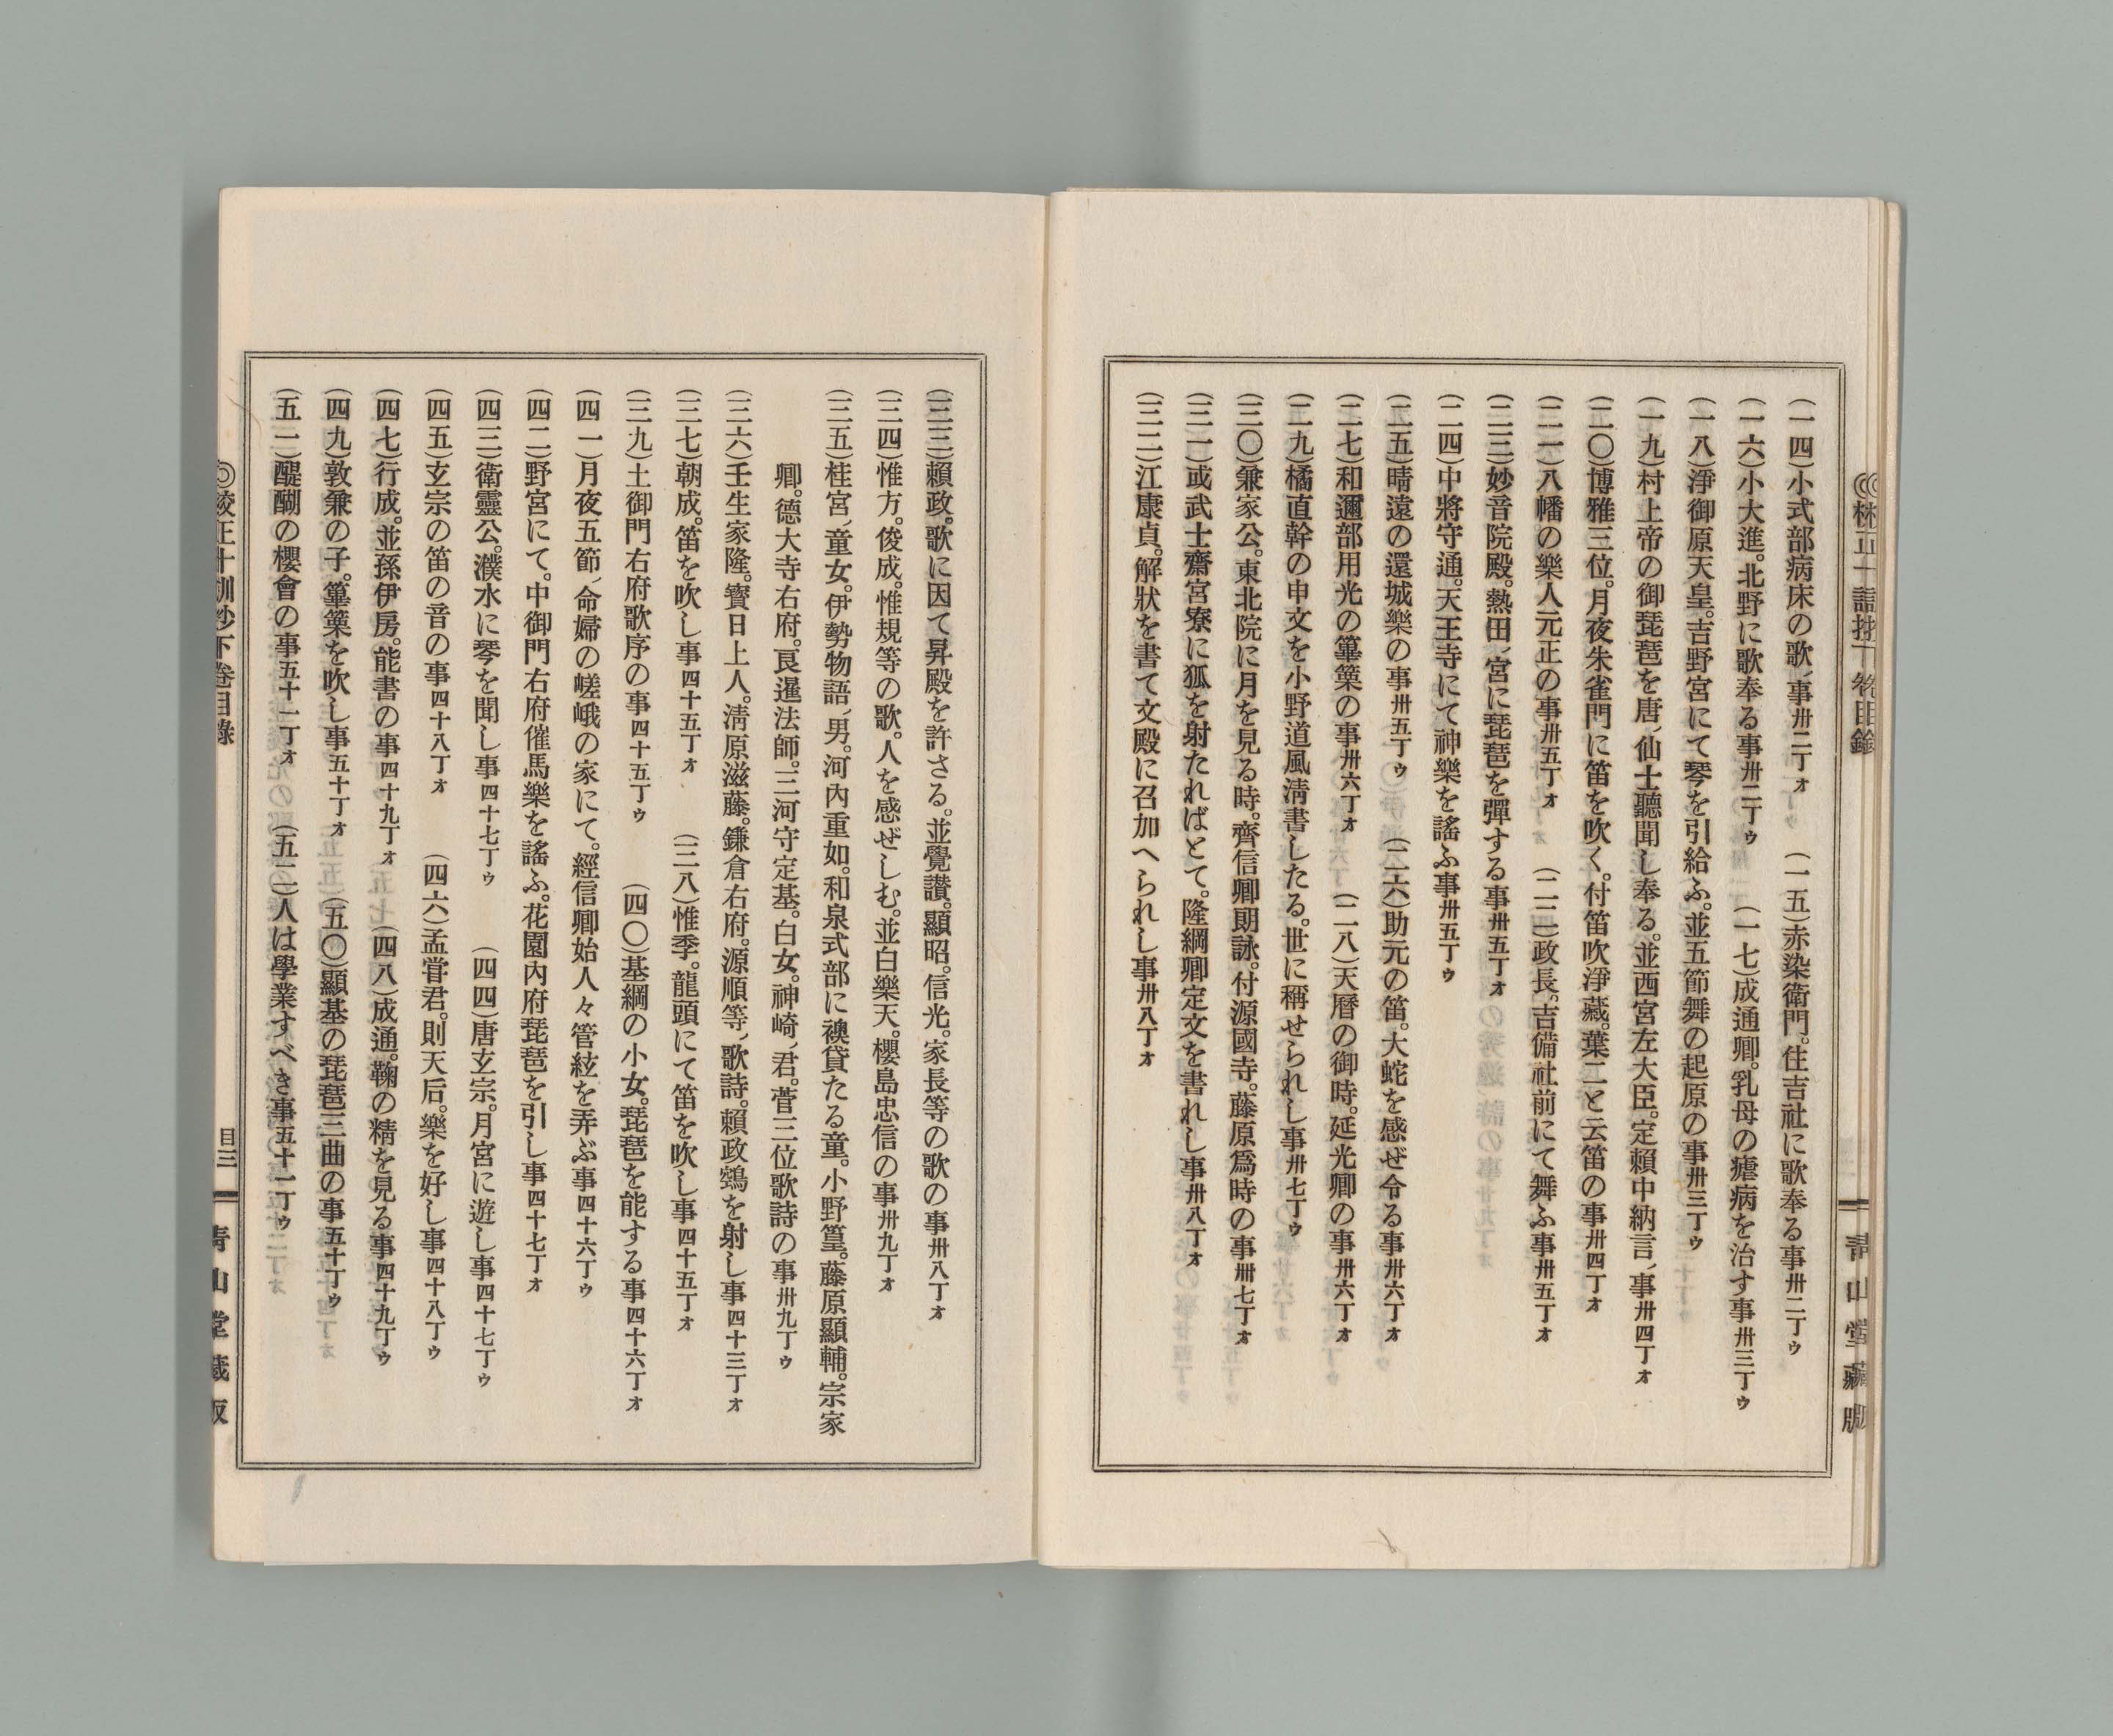 (一四)小式部病床の歌、事卅二丁ォ　(一五)赤染衛門。住吉社に歌奉る事卅二丁ゥ
(一六)小大進。北野に歌奉る事卅二丁ゥ　(一七)成通卿。乳母の瘧病を治す事卅三丁ゥ
(一八)淨御原天皇。吉野宮にて琴を引給ふ。並五節舞の起原の事卅三丁ゥ
(一九)村上帝の御琵琶を唐、仙士聽聞し奉る。並西宮左大臣。定賴中納言、事卅四丁ォ
(二〇)博雅三位。月夜朱雀門に笛を吹く。付笛吹淨藏。葉二と云笛の事卅四丁ォ
(二一)八幡の樂人元正の事卅五丁ォ　(二二)政長。吉備社前にて舞ふ事卅五丁ォ
(二三)妙音院殿。熱田、宮に琵琶を彈する事卅五丁ォ
(二四)中將守通。天王寺にて神樂を謠ふ事卅五丁ゥ
(二五)晴遠の還城樂の事卅五丁ゥ　(二六)助元の笛。大蛇を感ぜ令る事卅六丁ォ
(二七)和邇部用光の篳篥の事卅六丁ォ　(二八)天暦の御時。延光卿の事卅六丁ォ
(二九)橘直幹の申文を小野道風淸書したる。世に稱せられし事卅七丁ゥ
(三〇)兼家公。東北院に月を見る時。齊信卿朗詠。付源國寺。藤原爲時の事卅七丁ォ
(三一)或武士齋宮寮に狐を射たればとて。隆綱卿定文を書れし事卅八丁ォ
(三二)江康貞。解狀を書て文殿に召加へられし事卅八丁ォ
靑山堂藏版
(三三)賴政。歌に因て昇殿を許さる。並覺讃。顯昭。信光。家長等の歌の事卅八丁ォ
(三四)惟方。俊成。惟規等の歌。人を感ぜしむ。並白樂天。櫻島忠信の事卅九丁ォ
(三五)桂宮、童女。伊勢物語、男。河內重如。和泉式部に襖貸たる童。小野篁。藤原顯輔。宗家
卿。德大寺右府。良暹法師。三河守定基。白女。神崎、君。菅三位歌詩の事卅九丁ゥ
(三六)壬生家隆。寶日上人。淸原滋藤。鎌倉右府。源順等、歌詩。賴政鵺を射し事四十三丁ォ
(三七)朝成。笛を吹し事四十五丁ォ　(三八)惟季。龍頭にて笛を吹し事四十五丁ォ
(三九)土御門右府歌序の事四十五丁ゥ　(四〇)基綱の小女。琵琶を能する事四十六丁ォ
(四一)月夜五節、命婦の嵯峨の家にて。經信卿始人々管絃を弄ぶ事四十六丁ゥ
(四二)野宮にて。中御門右府催馬樂を謠ふ。花園內府琵琶を引し事四十七丁ォ
(四三)衛靈公。濮水に琴を聞し事四十七丁ゥ　(四四)唐玄宗。月宮に遊し事四十七丁ゥ
(四五)玄宗の笛の音の事四十八丁ォ　(四六)孟甞君。則天后。樂を好し事四十八丁ゥ
(四七)行成。並孫伊房。能書の事四十九丁ォ　(四八)成通。鞠の精を見る事四十九丁ゥ
(四九)敦兼の子。篳篥を吹し事五十丁ォ　(五〇)顯基の琵琶三曲の事五十丁ゥ
(五一)醍醐の櫻會の事五十一丁ォ　(五二)人は學業すべき事五十一丁ゥ
◎校正十訓抄下卷目錄　目三　靑山堂藏版